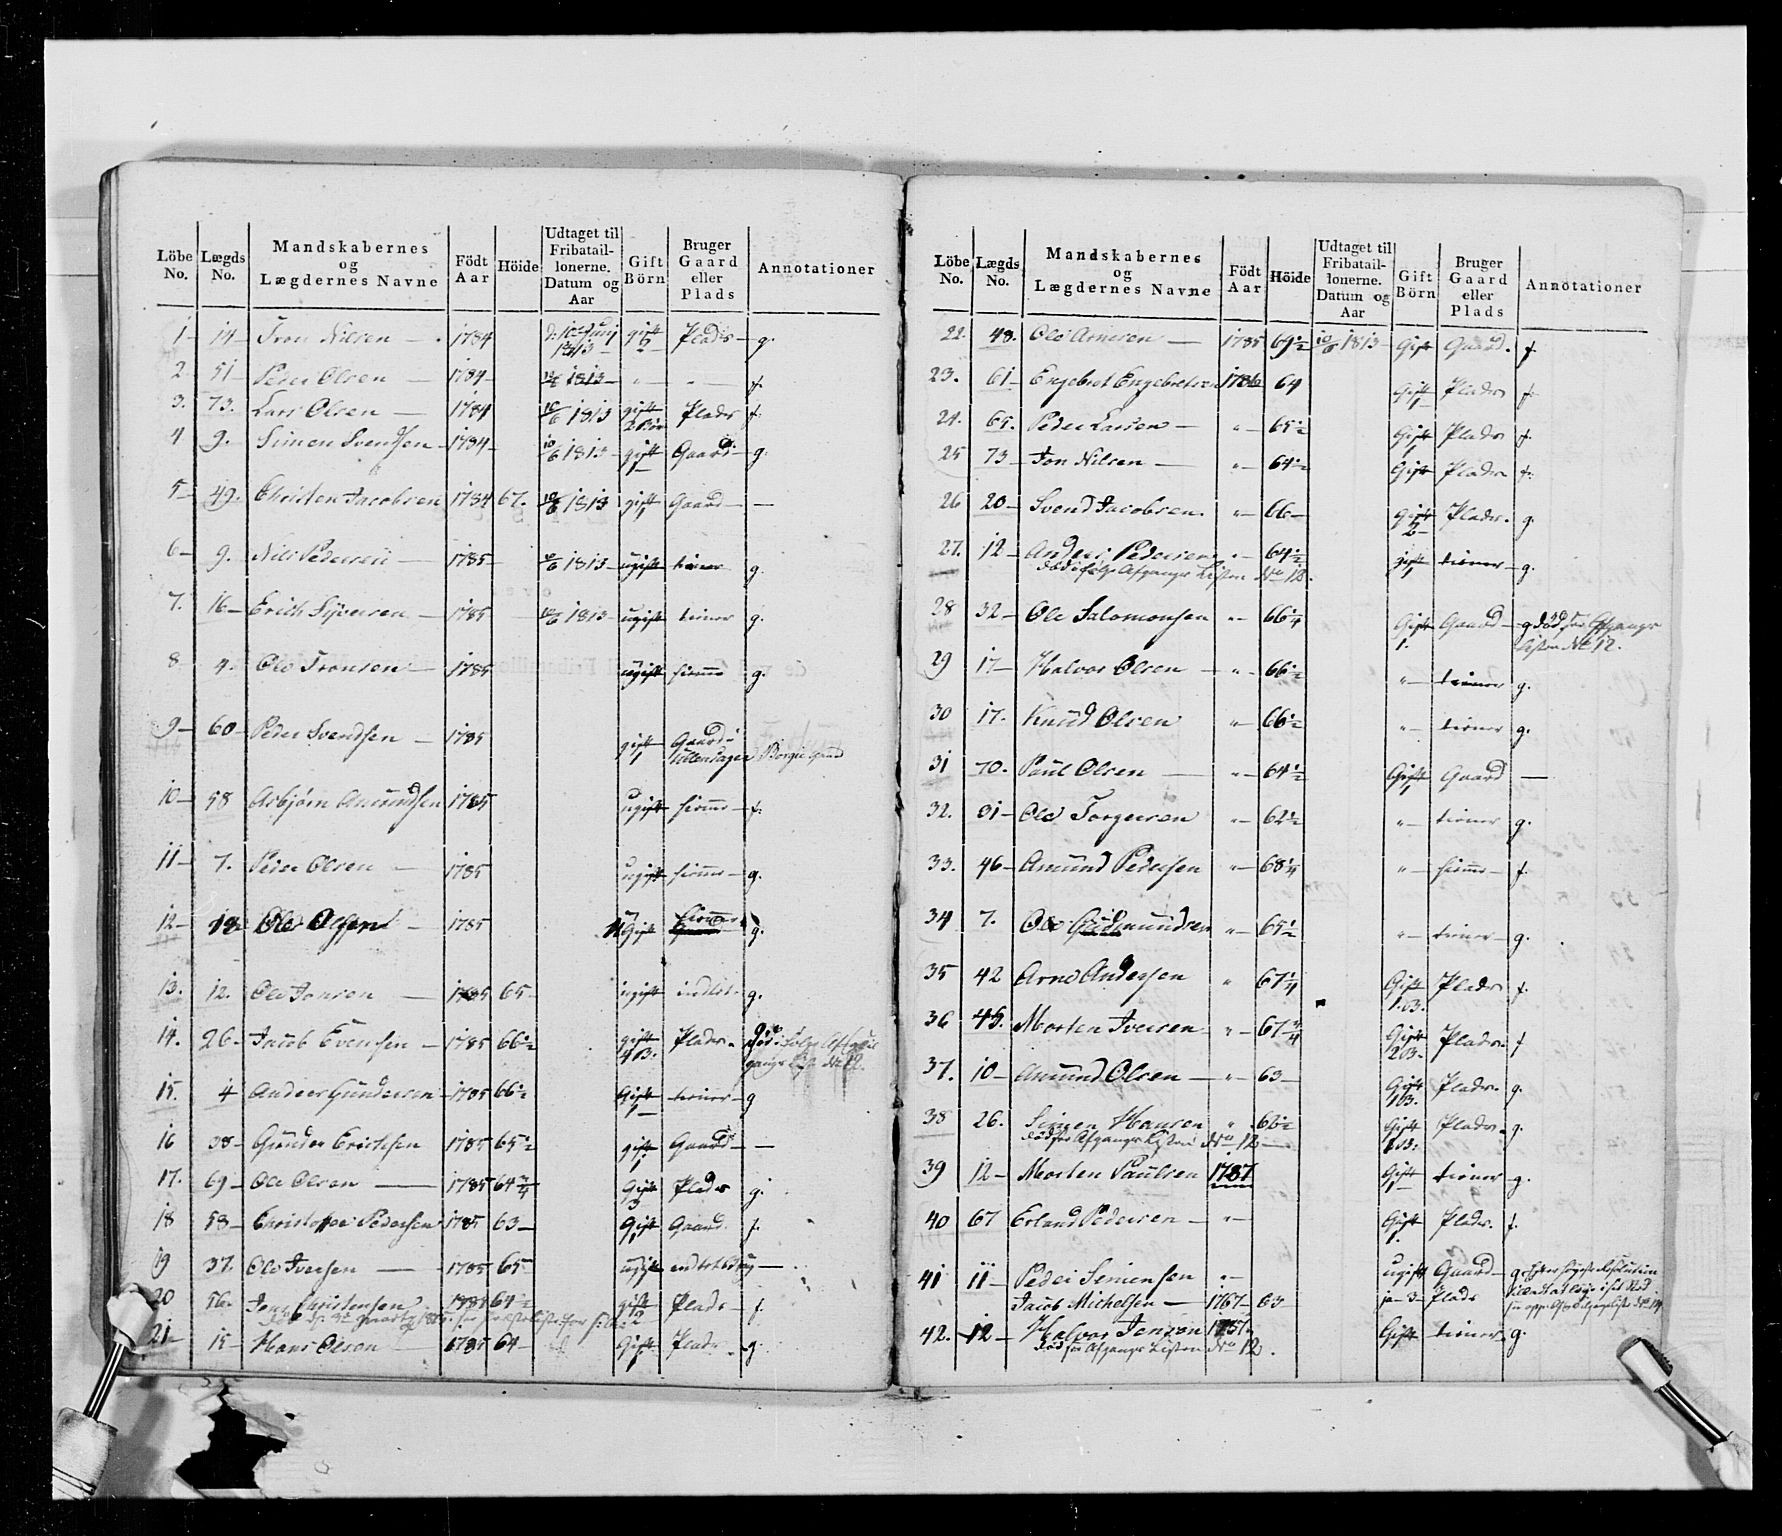 Löbe No. Lægds No. Mandskabernes og Lægdernes Navne Född Aar Höide Udtaget til Fribataillonerne. Datum og Aar Gift Börn Bruger Gaard eller Plads Annotationer
1 14 Tron Nilsen 1784 d: 10 Junj 1813 gift Plads g.
2. 51 Peder Olsen 1784 10/6 1813 " " f.
3. 73. Lars Olsen 1784 10/6 1813 gift 2 Plads f.
4 9. Simen Svendsen 1784 10/6 1813 gift 1 Gaard g.
5 49. Christen Jacobsen 1784 67. 10/6 1813 gift 1 Gaard —
6 9. Nils Pedersen 1785 10/6 1813 ugift tiener g.
7. 16 Erich Syversen 1785 10/6 1813 ugift tiener g.
8 4. Ole Tronsen 1785 ugift hiemme g.
9 60 Peder Svendsen 1785 gift 1 Gaard i Ullensager
10 58 Asbjørn Amundsen 1785 ugift hiemme f.
11 7. Peder Olsen 1785 ugift hiemme g.
12 Ole Olsen 1785 ugift hiemme g.
13. 12. Ole Jonsen 1785 65 ugift g.
14. 26 Jacob Evensen 1785 66½ gift Plads død ifølge Afgangs List No 12.
15. 4 Anders Gundersen 1785 66½ Gift 1 tiener g
16 38 Gunder Erichsen 1785 65½ gift 1 Gaard —
17. 69 Ole Olsen 1785 64¾ Gift 3 Plads g.
18 58 Christoffer Pedersen 1785 63 Gift 1 Gaard f.
19 37. Ole Iversen 1785 65 ugift —
20 56. Christensen 1785 64½ gift 2 Plads f.
21 15 Hans Olsen 1785 64 Gift 1 Plads g.
Löbe No. Lægds No. Mandskabernes og Lægdernes Navne Född Aar Höide Udtaget til Fribataillonerne. Datum og Aar Gift Börn Bruger Gaard eller Plads Annotationer
22. 48. Ole Arnesen 1785 69½ 10/6 1813 Gift Gaard. f.
23. 61 Engebret Engebretsen 1786 64 Gift 1 Plads f.
24. 65. Peder Larsen " 65½ Gift 1 Plads f.
25 73 Jon Nilsen " 64½ Gift Plads f.
26 20 Svend Jacobsen " 66 Gift 2 Plads. g.
27. 12 Anders Pedersen " 64½ gift 1 tiener g.
død ifølge Afgangs Listen No 12.
28 32 Ole Salomonsen " 66¼ Gift 1. Gaard g død før Afgangs Listen No 12.
29 17 Halvor Olsen " 66½ " tiener g.
30 17. Knud Olsen " 66½ " tiener g.
31 70. Paul Olsen " 64½ Gift 1 Gaard —
32. Ole Torgersen " 62½ " tiener g.
33. 46 Amund Pedersen " 68¼ " hiemme f.
34 7. Ole Gudmundsen " 65½ " tiener g.
35 42 Arne Andersen " 67¼ Gift 1. B. Plads f.
36 45. Morten Iversen " 67¾ Gift 2 B. Plads f
37. 10 Amund Olsen " 63 Gift 1 B. Plads. g.
38 26. Simen Hansen " 66½ Gift Plads. g.
død før Afgangs Listen No 12
39 12 Morten Paulsen 1787 Gift 1 tiener g.
40 67 Erland Pedersen " Gift 1 Plads. f.
41 11 Peder Simensen " ugift Gaard g.
Jacob Michelsen 1767 63 ja 3 Plads
42. 12 Halvor Jensen Gift tiener g.
død før Afgangs Listen No 12.